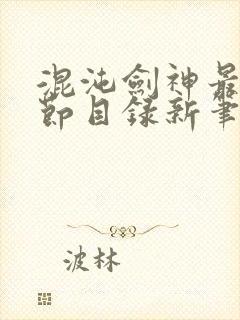 混沌劍神最
節目錄新筆
波林